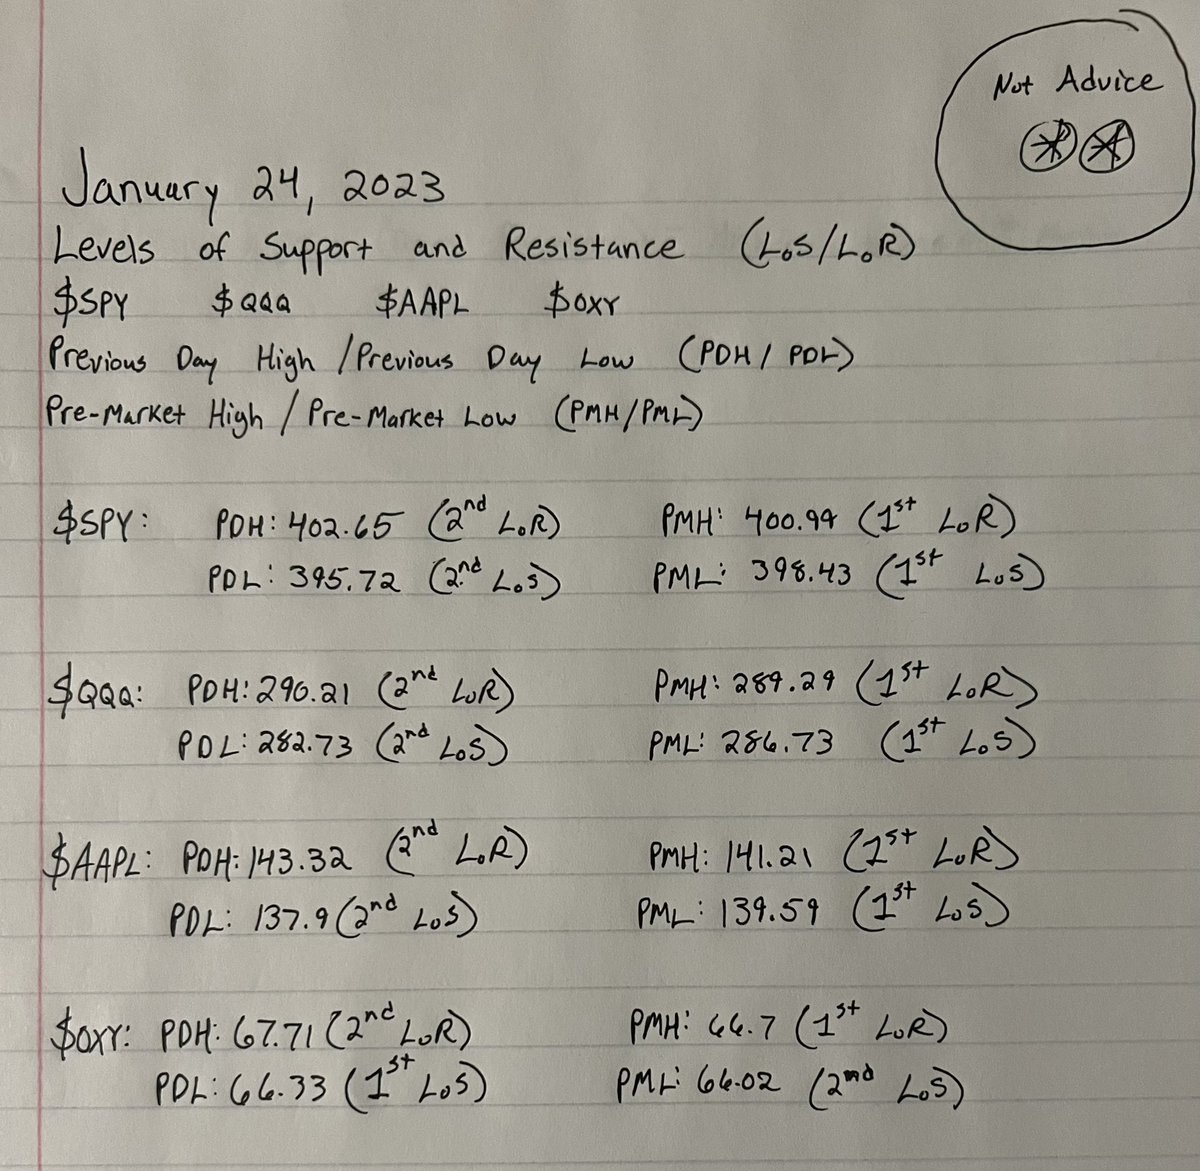 Not Advice
January 24, 2023
Levels of Support and Resistance (LoS/LoR)
$SPY $QQQ $AAPL $OXY
Previous Day High / Previous Day Low (PDH / PDL)
Pre-Market High / Pre-Market Low (PMH/PML)
$SPY: PDH: 402.65 (2nd LoR) PMH: 400.99 (1st LoR)
PDL: 395.72 (2nd LoS) PML: 398.43 (1st LoS)
$QQQ: PDH: 290.21 (2nd LoR) PMH: 289.29 (1st LoR)
PDL: 282.73 (2nd LoS) PML: 286.73 (1st LoS)
$AAPL: PDH: 143.32 (2nd LoR) PMH: 141.21 (1st LoR)
PDL: 137.9 (2nd LoS) PML: 139.59 (1st LoS)
$OXY: PDH: 67.71 (2nd LoR) PMH: 66.7 (1st LoR)
PDL: 66.33 (1st LoS) PML: 66.02 (2nd LoS)